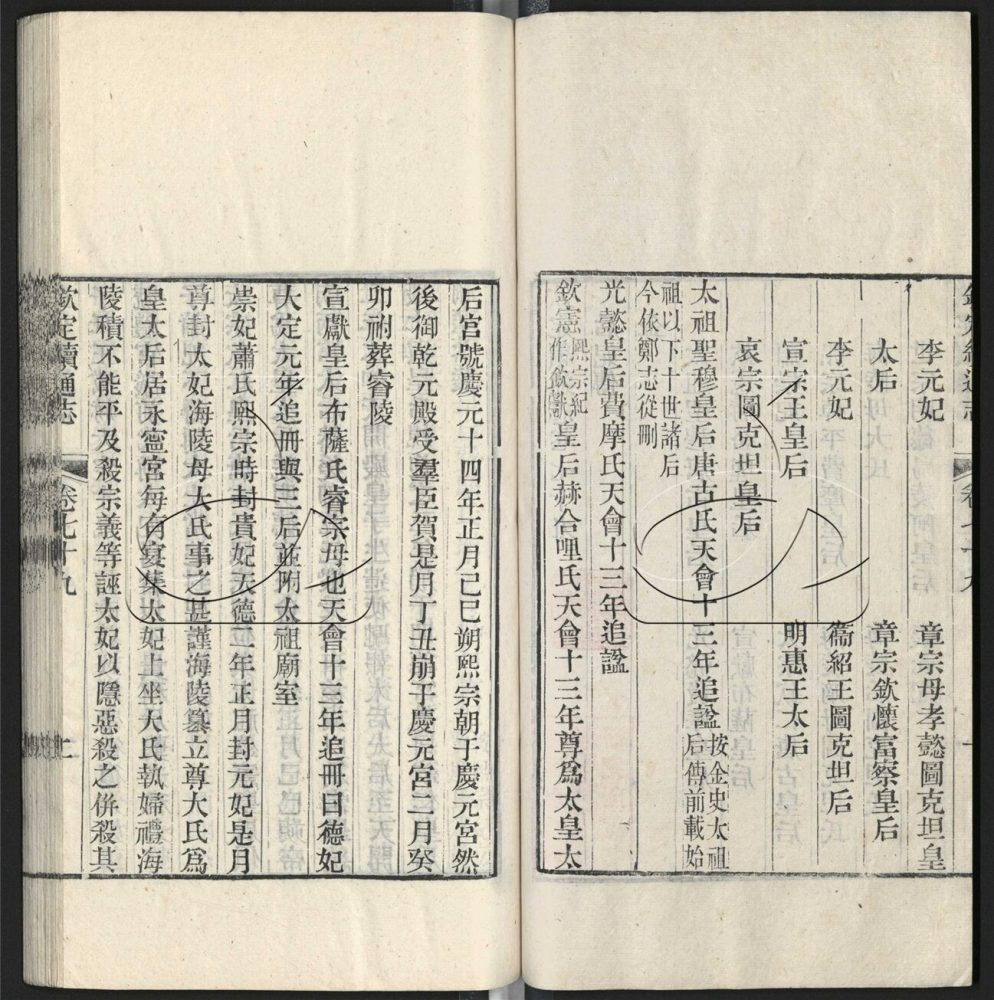 李元妃　章宗母孝懿圖克坦皇
太后　章宗欽懷富察皇后
李元妃　衞紹王圖克坦后
宣宗王皇后　明惠王太后
哀宗圖克坦皇后
太祖聖穆皇后唐古氏天會十三年追諡按金史太祖后傳前載始
祖以下十世諸后今依鄭志從刪
光懿皇后費摩氏天會十三年追諡
欽憲熙宗紀作欽獻皇后赫合哩氏天會十三年尊爲太皇太
后宮號慶元十四年正月己巳朔熙宗朝于慶元宮然
後御乾元殿受羣臣賀是月丁丑崩于慶元宮二月癸
卯祔葬睿陵
宣獻皇后布薩氏睿宗母也天會十三年追冊曰德妃
大定元年追冊與三后並祔太祖廟室
崇妃蕭氏熙宗時封貴妃天德二年正月封元妃是月
尊封太妃海陵母大氏事之甚謹海陵篡立尊大氏爲
皇太后居永寧宮每有宴集太妃上坐大氏執婦禮海
陵積不能平及殺宗義等誣太妃以隱惡殺之併殺其
欽定續通志　卷七十九　二